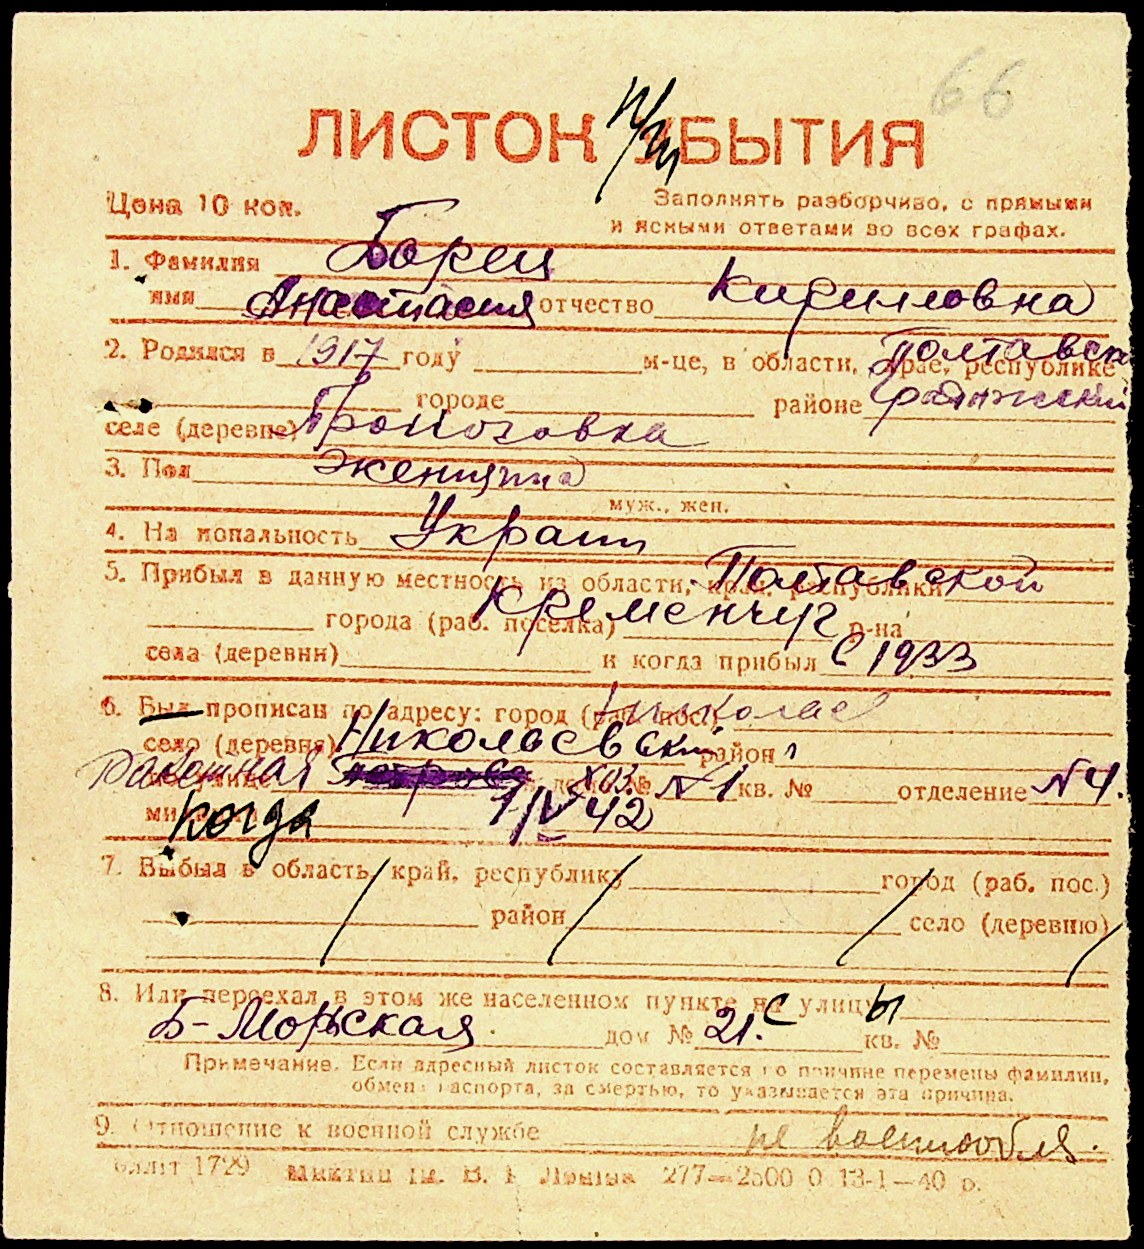 66
ЛИСТОК УБЫТИЯ
Цена 10 коп. Заполнять разборчиво, с прямыми
и ясными ответами во всех графах.
1. Фамилия Борец
имя Анастасия отчество Кирилловна
2. Родился в 1917 году м-це, в области, крае, республике Полтавск
городе районе
селе (деревне)
3. Пол женщина
муж., жен.
4. Национальность Украин
5. Прибыл в данную местность из области, края, республики Полтавской
города (раб. поселка) Кременчуг р-на
села (деревни) и когда прибыл с 1933
6. Был прописан по адресу: город (раб. пос.) Николаев
село (деревня) Николаевский район
№ №1 кв. № отделение №4.
когда 1/IV 42
7. Выбыл в область, край, республику город (раб. пос.)
район село (деревню)
8. Или переехал в этом же населенном пункте на улицу с ы
Б-Морская дом № 21. кв. №
Примечание. Если адресный листок составляется по причине перемены фамилии,
обмена паспорта, за смертью, то указывается эта причина.
9. Отношение к военной службе не военнообяз.
1729 277—2500 0 13-1—40 р.